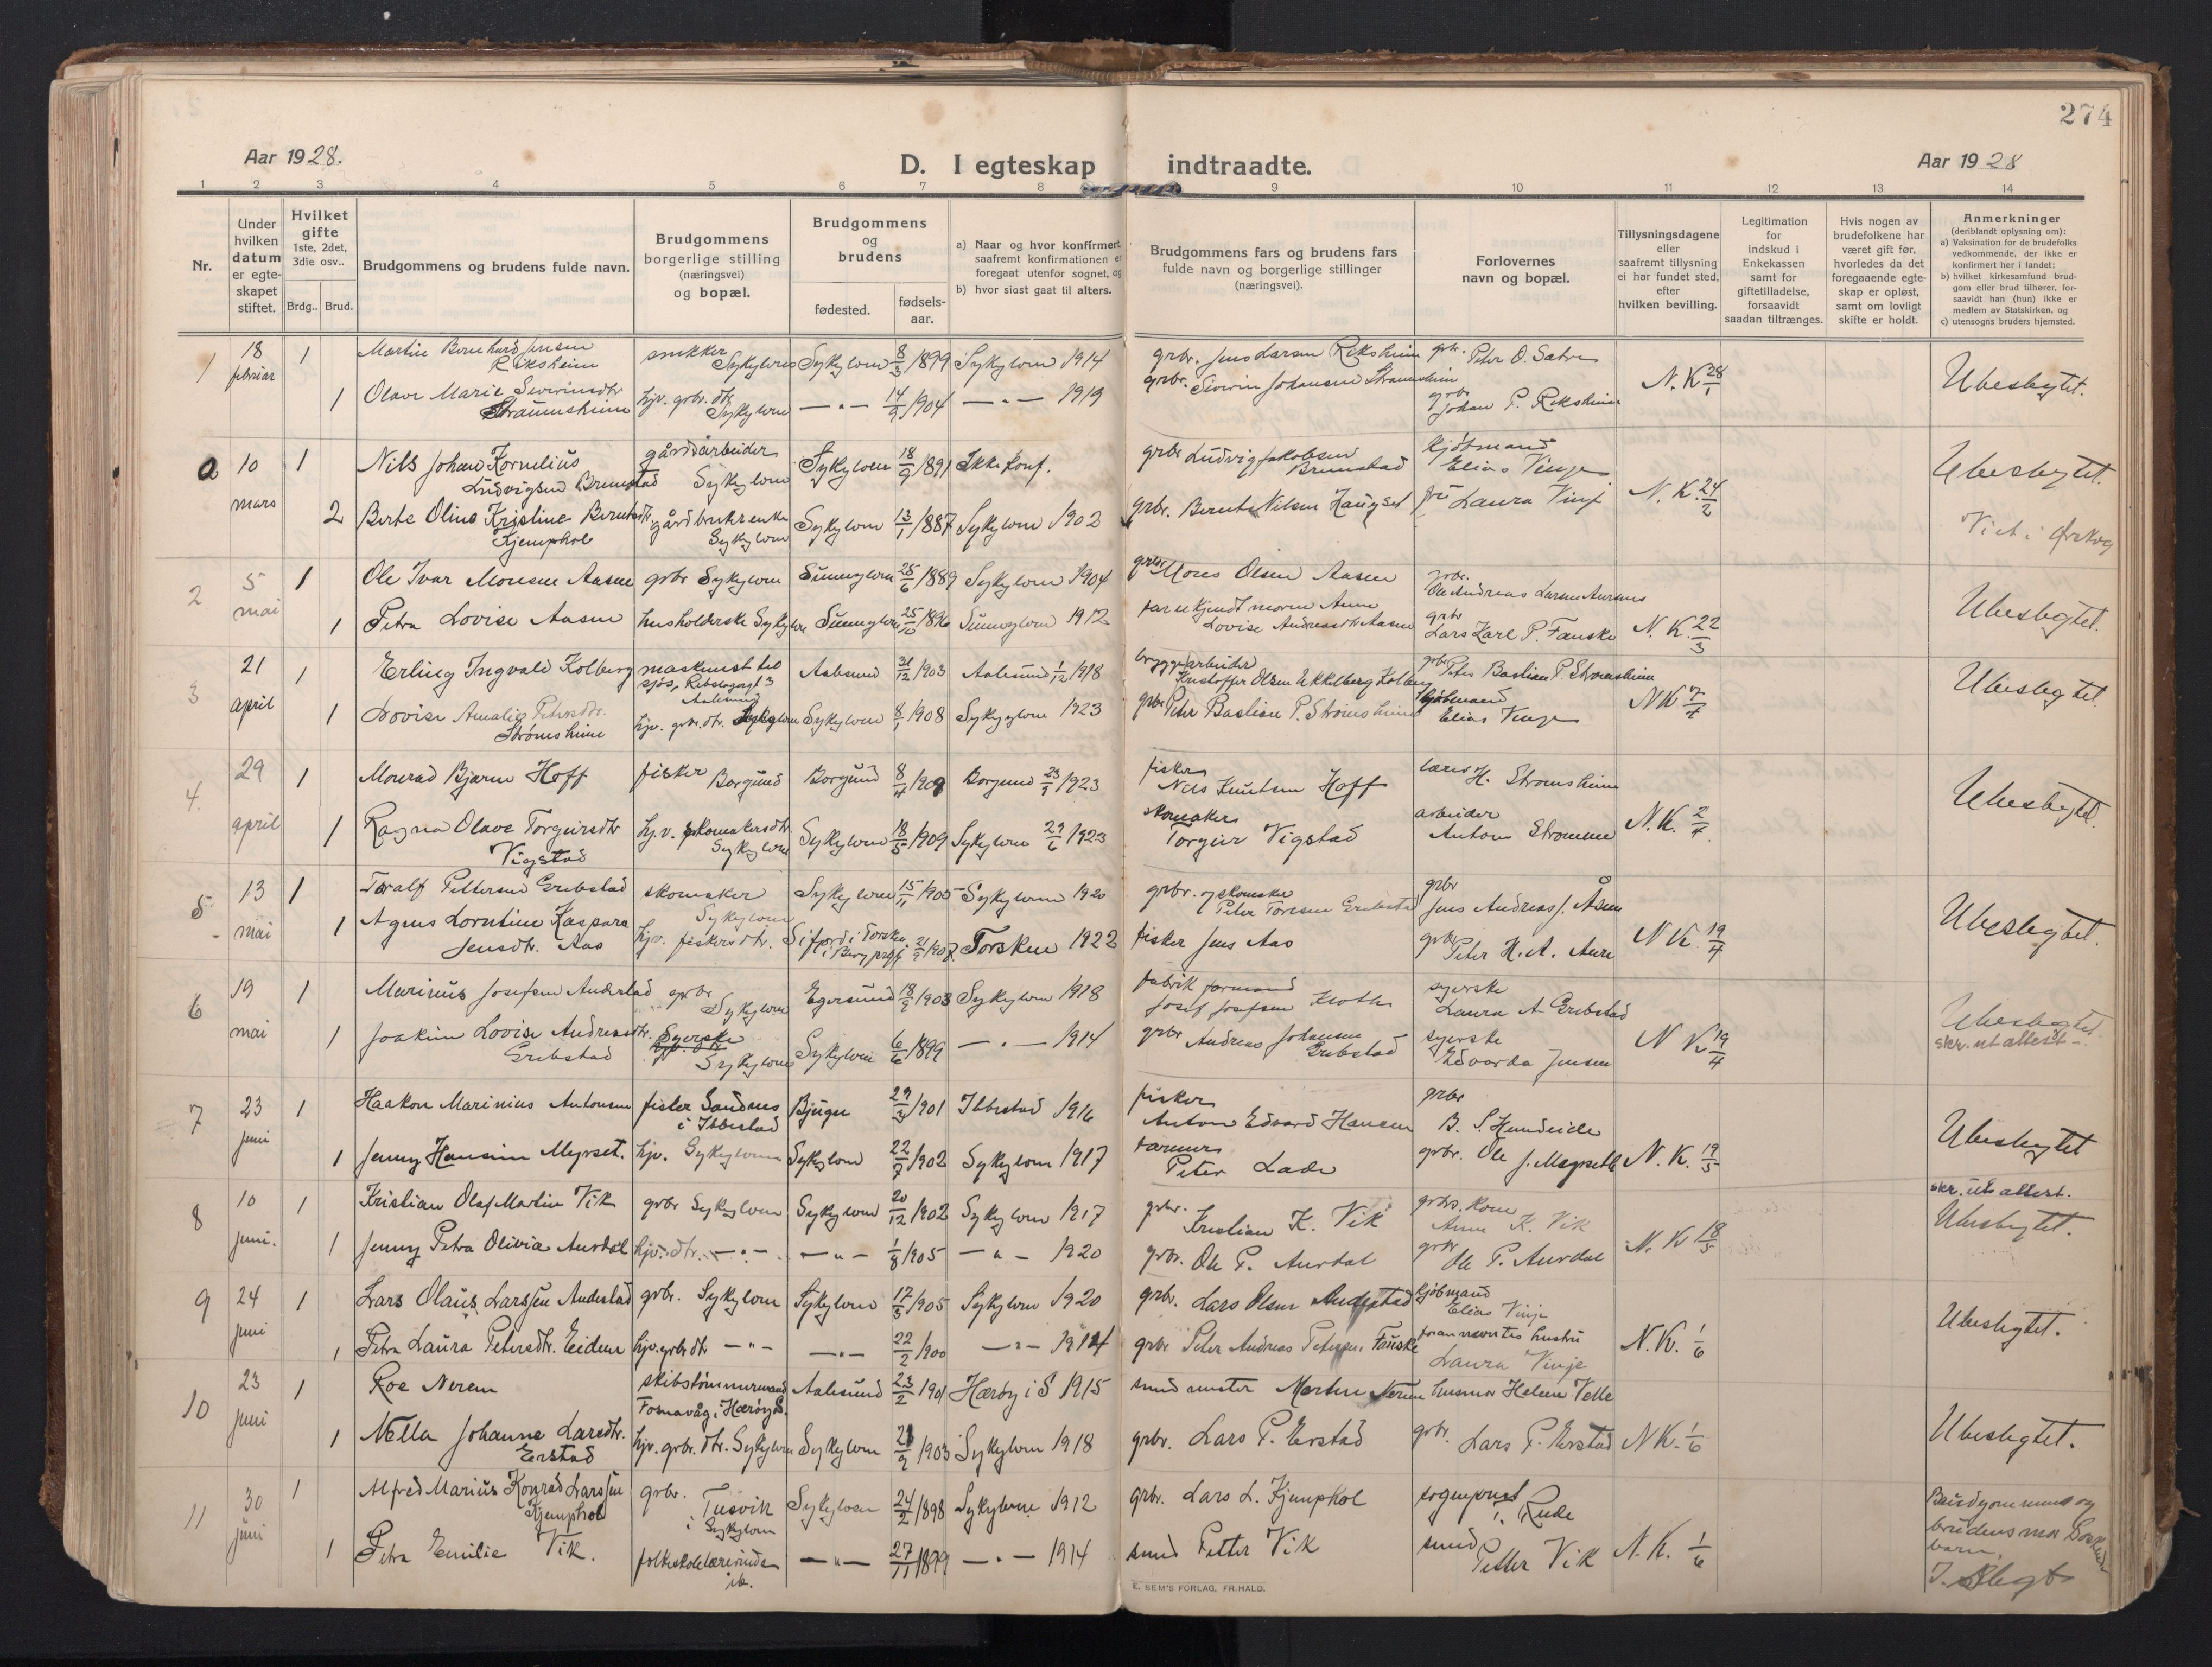 274
Aar 1928.
D. I egteskap indtraadte.
Aar 1928
1 2 3 4 5 6 7 8 9 10 11 12 13 14
Nr.
Under
hvilken
datum
er egte-
skapet
stiftet.
Hvilket
gifte
1ste, 2det,
3die osv..
Brdg.. Brud.
Brudgommens og brudens fulde navn.
Brudgommens
borgerlige stilling
(næringsvei)
og bopæl.
Brudgommens
og
brudens
fødested.
fødsels-
aar.
a) Naar og hvor konfirmert
saafremt konfirmationen er
foregaat utenfor sognet, og
b) hvor sidst gaat til alters.
Brudgommens fars og brudens fars
fulde navn og borgerlige stillinger
(næringsvei).
Forlovernes
navn og bopæl.
Tillysningsdagene
eller
saafremt tillysning
ei har fundet sted,
efter
hvilken bevilling.
Legitimation
for
indskud i
Enkekassen
samt for
giftetilladelse,
forsaavidt
saadan tiltrænges.
Hvis nogen av
brudefolkene har
været gift før,
hvorledes da det
foregaaende egte-
skap er opløst,
samt om lovligt
skifte er holdt.
Anmerkninger
(deriblandt oplysning om):
a) Vaksination for de brudefolks
vedkommende, der ikke er
konfirmert her i landet;
b) hvilket kirkesamfund brud-
gom eller brud tilhører, for-
saavidt han (hun) ikke er
medlem av Statskirken, og
c) utensogns bruders hjemsted.
1 18 februar 1 Martin Bernhard Jensen Riksheim snekker Sykylven Sykylven 8/3 1899 Sykylven 1914 grbr. Jens Larsen Riksheim grbr. Peter O. Sætre
1 Olave Marie Severinsdtr Straumsheim hjv. grbr. dtr Sykylven — " — 14/9 1904 — " — 1919 grbr. Severin Johansen Straumsheim grbr Johan P. Riksheim N.K. 28/1 Ubeslegtet.
a 10 mars 1 Nils Johan Kornelius Ludvigsen Brunstad gårdsarbeider Sykylven Sykylven 18/9 1891 Ikke konf. grbr Ludvig Jakobsen Brunstad kjøbmand Elias Vinje
2 Berte Oline Kristine Berntsdtr Kjemphol gårdbrukrenke Sykylven Sykylven 13/1 1887 Sykylven 1902 grbr. Bernt Nilsen Haugset fru Laura Vinje N.K. 24/2 Ubeslegtet. Viet i Ørskog
2 5 mai 1 Ole Ivar Monsen Aasen grbr Sykylven Sunnylven 25/6 1889 Sykylven 1904 grbr Mons Olsen Aasen grbr. Ole Andreas Larsen Aursnes
1 Petra Lovise Aasen husholderske Sykylven Sunnylven 25/10 1896 Sunnylven 1912 far ukjendt moren Anne Lovise Andreasdtr Aasen grbr Lars Karl P. Fauske N.K. 22/3 Ubeslegtet.
3 21 april 1 Erling Ingvald Kolberg maskinist til sjøs, Aalesund Aalesund 31/12 1903 Aalesund 1/12 1918 bryggearbeider Kristoffer Olsen Ukkelberg Kolberg grbr Peter Bastian P. Strømsheim
1 Lovise Amalie Petersdtr. Strømsheim hjv. grbr. dtr. Sykylven Sykylven 8/1 1908 Sykylven 1923 grbr Peter Bastian P. Strømsheim kjøbmand Elias Vinje NK 7/4 Ubeslegtet.
4. 29 april 1 Monrad Bjarne Hoff fisker Borgund Borgund 8/4 1909 Borgund 23/9 1923 fisker Nils Knutsen Hoff lærer H. Strømsheim
1 Ragna Olave Torgeirsdtr Vigstad hj.v. skomakersdtr. Sykylven Sykylven 18/5 1909 Sykylven 29/6 1923 skomaker Torgeir Vigstad arbeider Anton Strømme N.K. 2/4 Ubeslegtet.
5 13 mai 1 Toralf Pettersen Grebstad skomaker Sykylven Sykylven 15/11 1905 Sykylven 1920 grbr. og skomaker Peter Toresen Grebstad grbr Jens Andreas J. Åsen
1 Agnes Lorntine Kaspara Jensdtr. Aas hjv. fiskersdtr. Sifjord i Torsken i Berg prgj. 1907. Torsken 1922 fisker Jens Aas grbr Peter H. A. Aure N K. 19/4 Ubeslegtet.
6 19 mai 1 Marinus Josefsen Andestad grbr Sykylven Egersund 18/2 1903 Sykylven 1918 fabrikformand Josef Josefsen syerske Laura A Grebstad
1 Joakim Lovise Andreasdtr. Grebstad Syerske Sykylven Sykylven 6/6 1899 — " — 1914 grbr Andreas Johansen Grebstad syerske Edvarda Jensen N K 19/4 Ubeslegtet. skr. ut attest.
7 23 juni 1 Haakon Marinius Antonsen fisker Sandnes i Ibbestad Bjugn 29/3 1901 Ibbestad 1916 fisker Anton Edvard Hansen grbr B. S. Hundeide
1 Jenny Hansine Myrset. hjv. Sykylven Sykylven 22/7 1902 Sykylven 1917 farmer Peter Lade grbr. Ole J. Myrseth N.K. 19/5 Ubeslegtet
8 10 juni. 1 Kristian Olaf Martin Vik grbr Sykylven Sykylven 20/12 1902 Sykylven 1917 grbr. Kristian K. Vik grbrs. kone Anne K. Vik skr. ut attest.
1 Jenny Petra Olivia Aurdal hjv. dtr. — " — — " — 1/8 1905 — " — 1920 grbr. Ole P. Aurdal grbr Ole P. Aurdal N. K 18/5 Ubeslegtet.
9 24 juni 1 Lars Olaus Larssen Andestad grbr. Sykylven Sykylven 17/3 1905 Sykylven 1920 grbr. Lars Olsen Andestad kjøbmand Elias Vinje
1 Petra Laura Petersdtr. Eidem hjv. grbr dtr — " — — " — 22/2 1900 — " — 1914 grbr Peter Andreas Petersen Fauske forannevntes hustru Laura Vinje N.K. 1/6 Ubeslegtet.
10 23 juni 1 Roe Nerem skibstømmermand Fosnavåg i Herøy S. Aalesund 23/2 1901 Herøy i S 1915 smedmester Morten Nerem husmor Helene Velle
1 Nella Johanne Larsdtr. Erstad hjv. grbr. dtr. Sykylven Sykylven 21/9 1903 Sykylven 1918 grbr. Lars P. Erstad grbr. Lars P. Erstad N K. 1/6 Ubeslegtet.
11 30 juni 1 Alfred Marius Konrad Larssen Kjemphol grbr. Tusvik i Sykylven Sykylven 24/2 1898 Sykylven 1912 grbr. Lars L. Kjemphol sogneprest Rude
1 Petra Emilie Vik. folkeskolelærerinde ib. — " — 27/11 1899 — " — 1914 smed Petter Vik smed Petter Vik N.K. 1/6 Brudgommens og brudens mor Søskenbarn. I. Slegt
E. SEM'S FORLAG, FR.HALD.